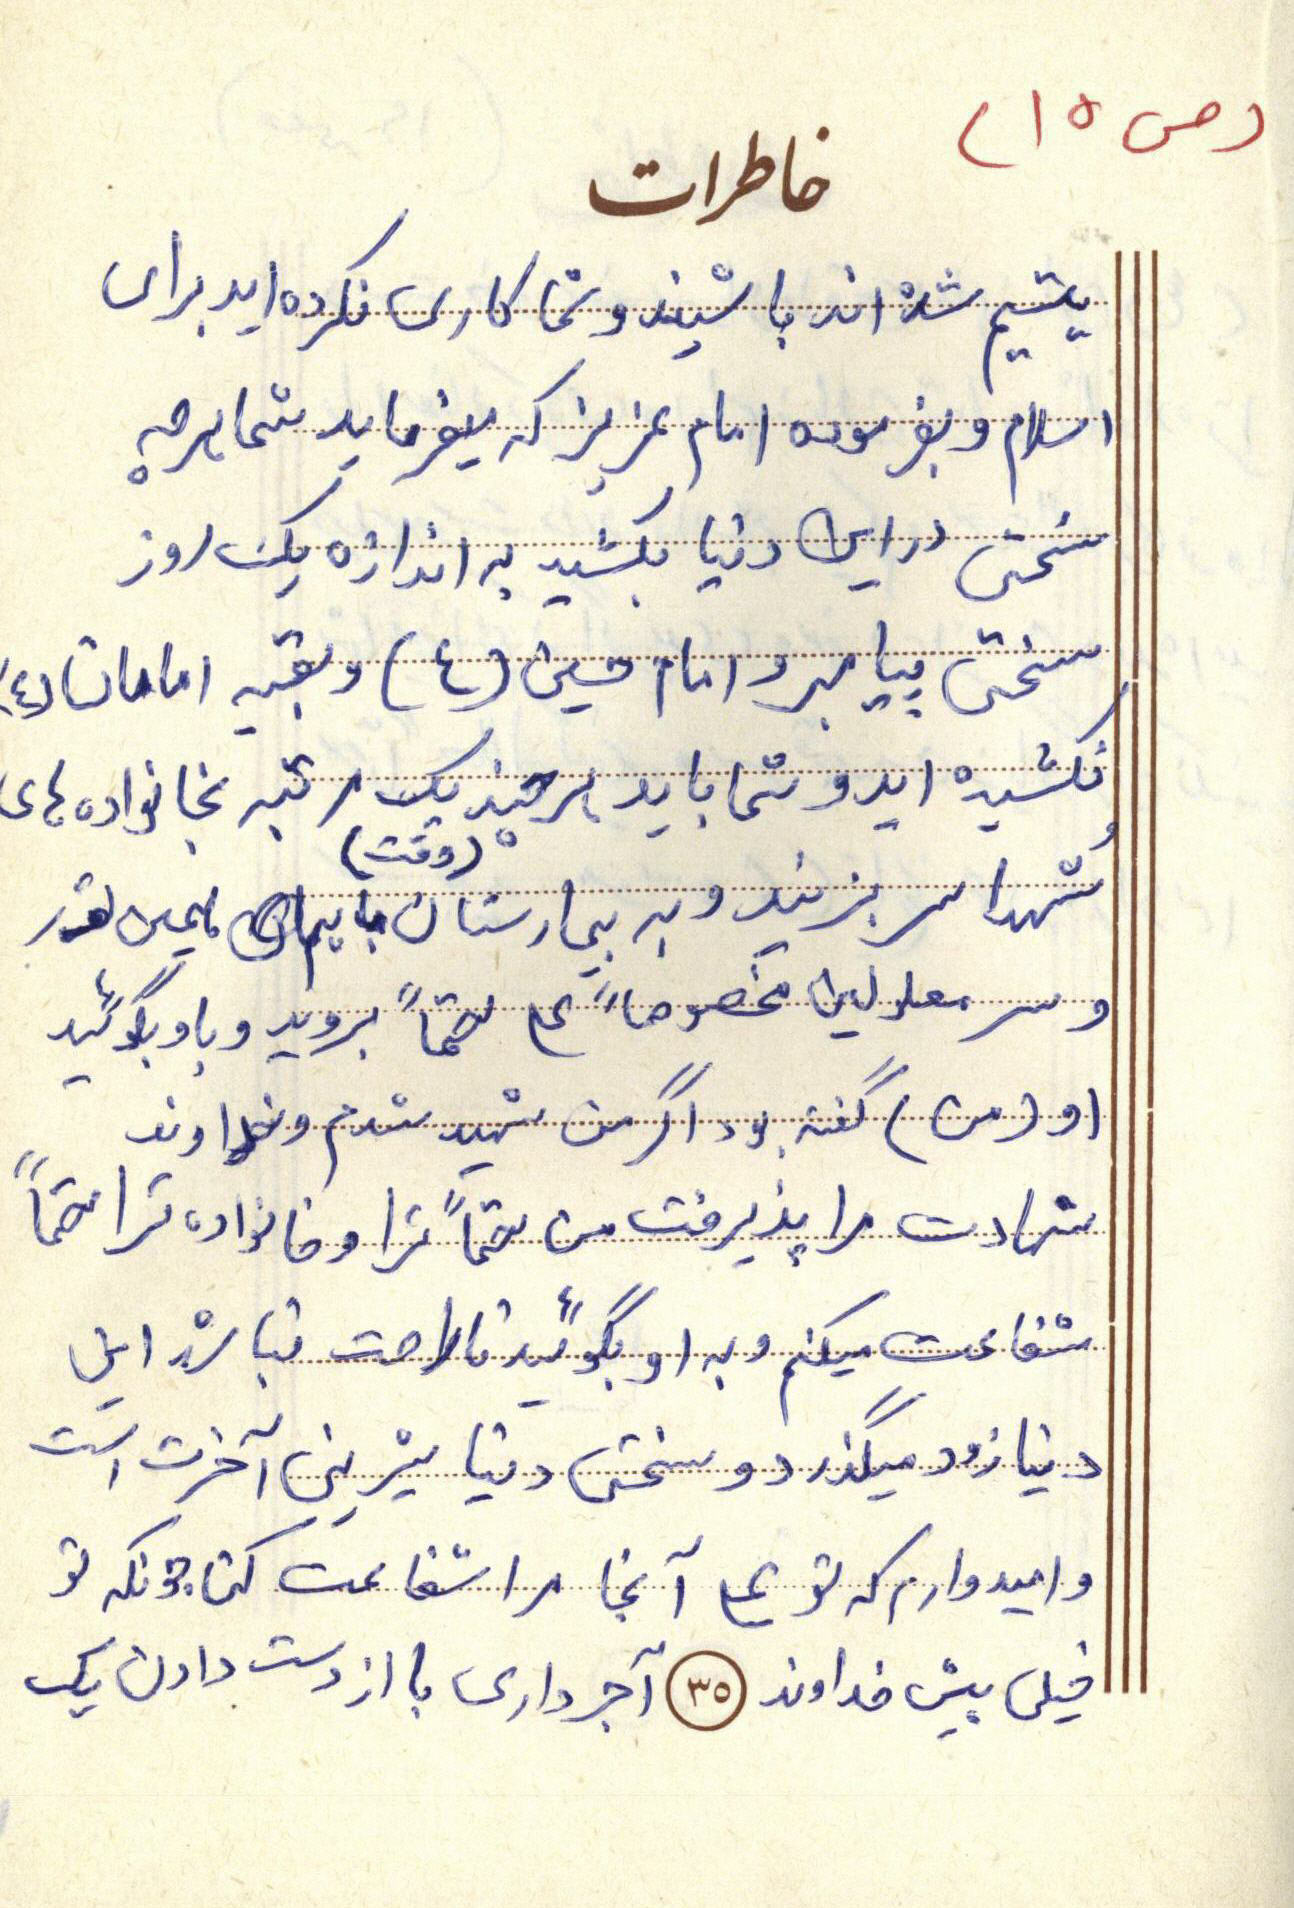 (ص ۱۵)
خاطرات
یتیم شده اند باشیند و شما کاری نکرده اید برای
اسلام و بفرموده امام عزیز که میفرماید شما هرچه
سختی در این دنیا بکشید به اندازه یک روز
سختی پیامبر و امام حسین (ع) و بقیه امامان (ع)
نکشیده اید و شما باید هرچند یک مرتبه بخانواده های
شهدا سر بزنید و به بیمارستان همین قدر
(وقت)
و سر معلولین مخصوصاً حتماً بروید و باو بگوئید
او (من) گفته بود اگر من شهید شدم و خداوند
شهادت مرا پذیرفت من حتماً ترا و خانواده ترا حتماً
شفاعت میکنم و به او بگوئید ناراحت نباشد این
دنیا زود میگذرد و سختی دنیا شیرینی آخرت است
و امیدوارم که تو هم آنجا مرا شفاعت کنی چونکه تو
خیلی پیش خداوند ۳۵ آجر داری با از دست دادن یک